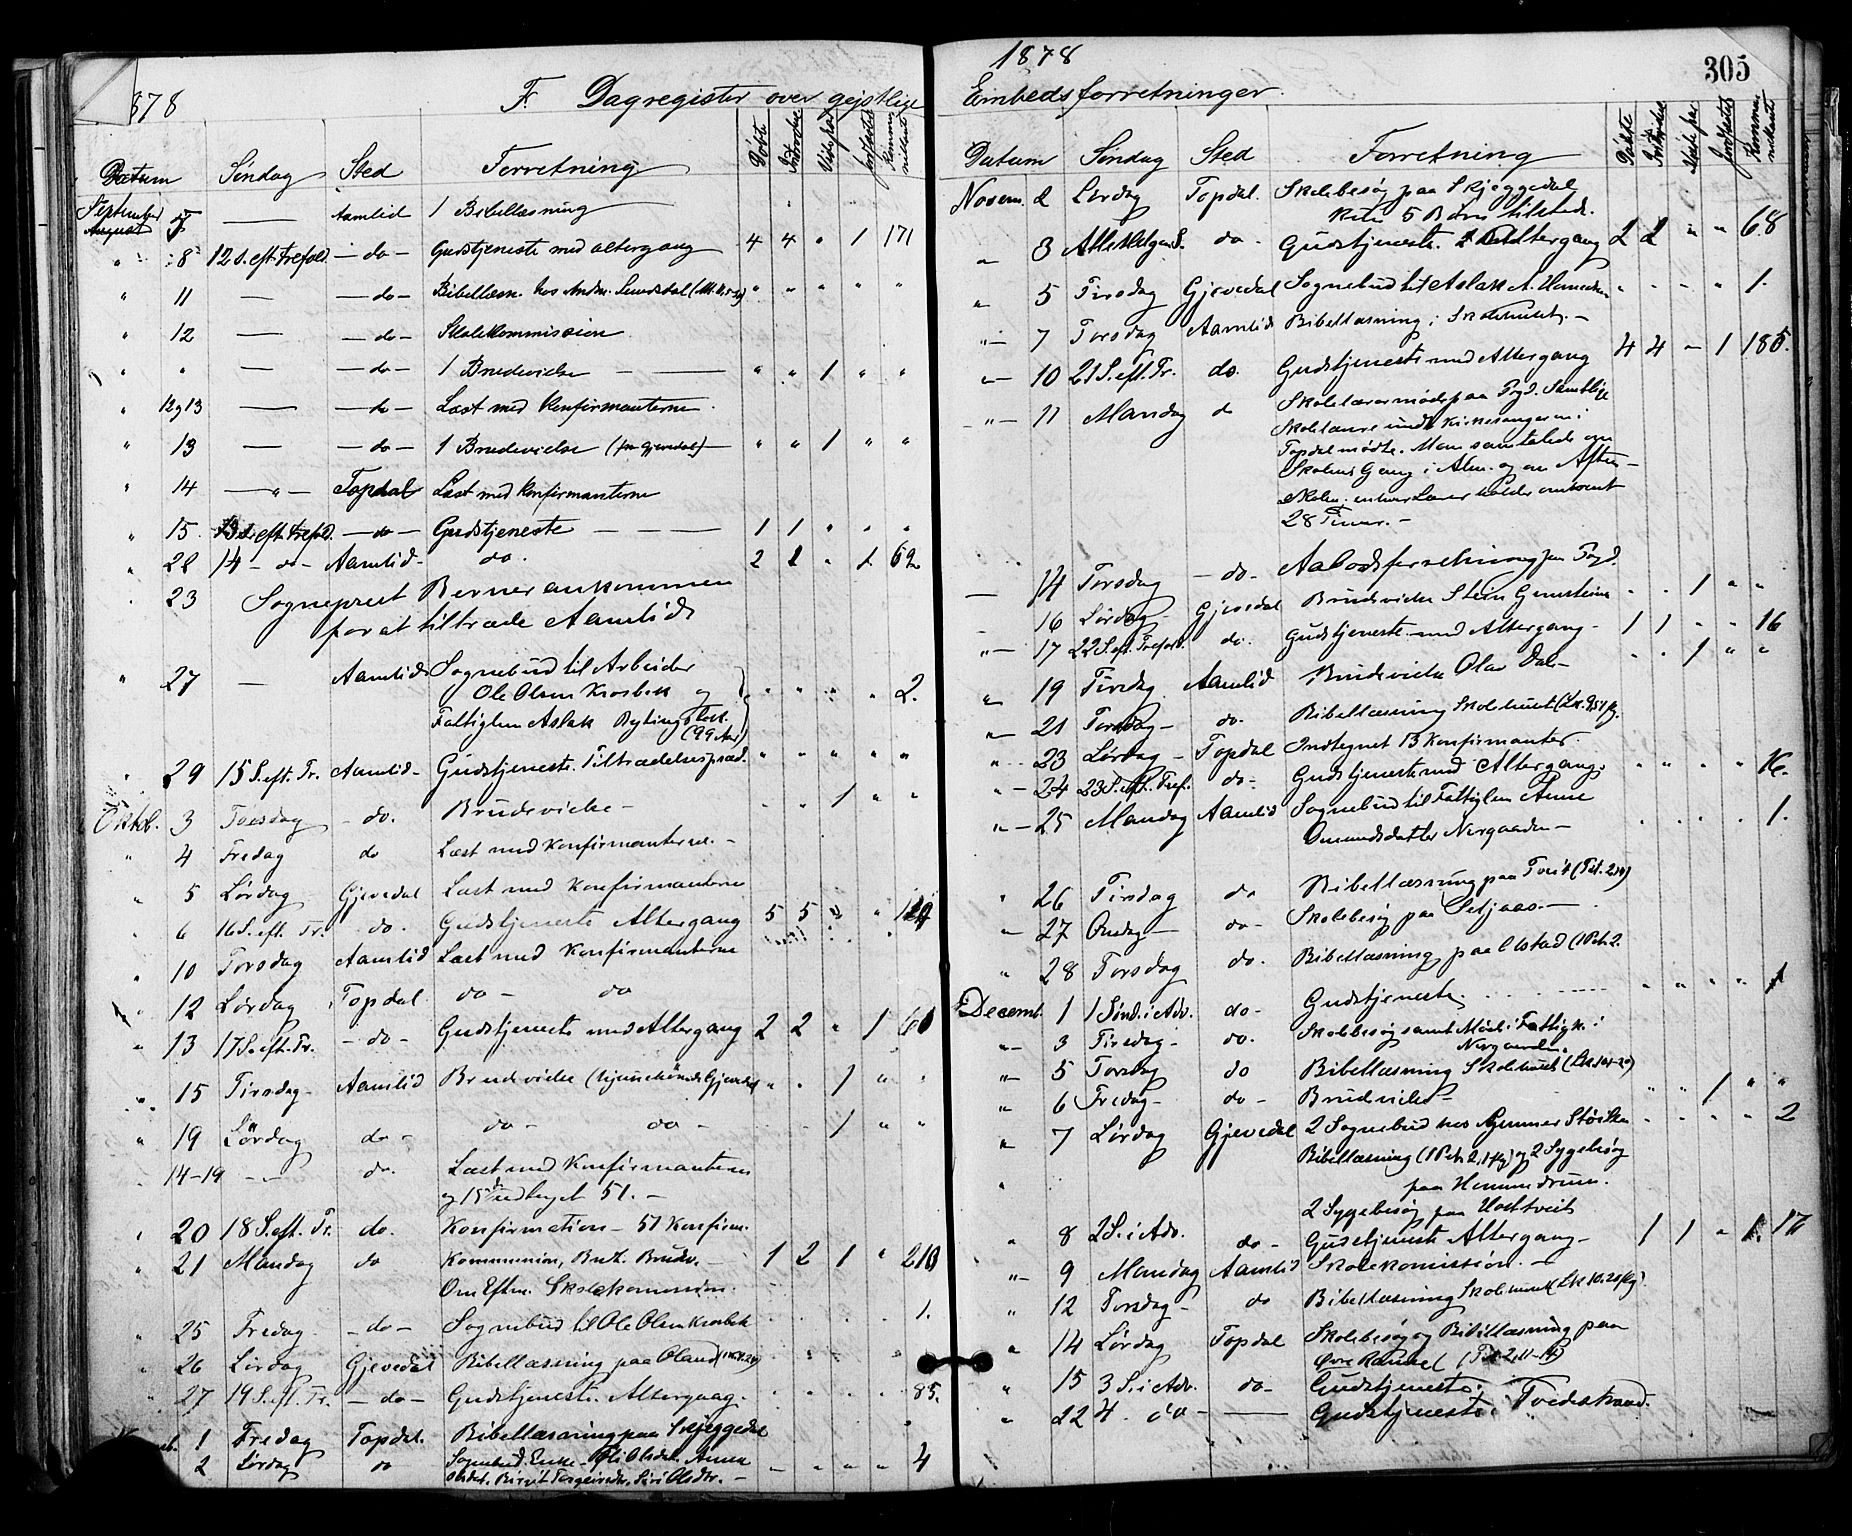 878 F. Dagregister over gejstlige
Datum Søndag Sted Forretning Døbte Introd. Viet par Jordfæstet Kommunikant
September
August 5 — Aamlid 1 Bibellæsning
" 8 12 S. eft. Trefold. — do — Gudstjeneste med altergang 4 4 " 1 171
" 11 — — do — Bibellæsn. hos Andr.
" 12 — — do — Skolekommission
" " — — do — 1 Brudevielse — " " 1 " "
" 12 og 13 — — do — Læst med Konfirmanterne.
" 13 — — do — 1 Brudevielse (fra Gjevedal) — " " 1 " "
" 14 — " — Topdal Læst med Konfirmanterne
" 15. 13 S. eft Trefold. — do — Gudstjeneste — — 1 1 " " "
" 22 14 — do — Aamlid — do. 2 2 " 1 62
" 23 Sogneprest Berner ankommen
for at tiltræde Aamlid
" 27 — Aamlid Sognebud til Arbeider
Ole Olsen Krosbek og " " " " 2.
Fattiglem Aslak
(99 Aar)
" 29 15 S. eft. Tr. Aamlid — Gudstjeneste. Tiltrædelsespræd. " " " " "
Oktob. 3 Torsdag — do. Brudevielse — " " 1 " "
" 4 Fredag do Læst med Konfirmanterne. —
" 5 Lørdag Gjevedal Læst med Konfirmanterne
" 6 16 S. eft. Tr. do. Gudstjeneste Altergang 5 5 " "
" 10 Torsdag Aamlid Læst med Konfirmanterne
" 12 Lørdag Topdal do — do
" 13 17 S. eft. Tr. — do — Gudstjeneste med Altergang 2 2 " 1 60
" 15 Tirsdag — Aamlid Brudevielse " " 1 " "
" 19 Lördag do — do — do — 1 " "
14–19 — do. Læst med Konfirmanterne
og 15de udtaget 51. —
" 20 18 S. eft. Tr. do. Konfirmation — 51 Konfirm.
" 21 Mandag do Kommunion, Brudv. — 1 2 1 " 210
Om Eftm. Skolekommission.
" 25 Fredag — do — Sognebud til Ole Olsen Krosbek 1.
" 26 Lørdag Gjevedal Bibellæsning paa Oland
" 27 19 S. eft. Tr. — do — Gudstjeneste. Altergang. 85.
1 Fredag Topdal. Bibellæsning paa Skjeggedal
2 Lørdag do Sognebud Olsdat. Anne
Olsdat. Birgit Siri Olsdtr. — — " " " 4
1878 305
Embedsforretninger.
Datum Søndag Sted Forretning Døbte Introd. Jordfæstet Kommunikant
Novem. 2 Lørdag Topdal. Skolebesøg paa Skjeggedal
kun 5 Børn tilstede.
" 3 Alle Helgen S. do. Gudstjeneste. Altergang 2 2 " " 68
" 5 Tirsdag Gjevedal Sognebud til Aslak A. " " " " 1.
" — 7 Torsdag Aamlid Bibellæsning i Skolehuset. —
" — 10 21 S. eft. Tr. do. Gudstjeneste med Altergang 4 4 — 1 185.
" — 11 Mandag do Skolelærermøde paa Prgd. Samtlige
Skolelærere undt. Kirkesangeren i
Topdal mødte. Man samtalede om
Skolens Gang i Alm. og om Aften-
skolen. enhver Lærer holder omtrent
28 Timer. —
— 14 Torsdag — do — Aabodsforretning paa Prgd.
16 Lørdag — Gjevedal Brudevielse Stein " " 1 " "
" — 17 22 S. eft. Trefold. do. Gudstjeneste med Altergang — 1 1 " " 16
" 19 Tirsdag Aamlid Brudevielse Olav Dal — " " 1 " "
" 21 Torsdag — do. Bibellæsning Skolehuset
" 23 Lørdag — Topdal Indtegnet 13 Konfirmanter.
" — 24 23 S. eft. Tref. do — Gudstjeneste med Altergang. " " " " 16.
" — 25 Mandag Aamlid Sognebud til Fattiglem Anne
Omundsdatter Nergaarden — 1.
" 26 Tirsdag do Bibellæsning paa Tveit (Tit. 2,14)
" 27 Onsdag — do — Skolebesøg paa Seljaas. —
" 28 Torsdag do. Bibellæsning paa Ulstad (1 Petr. 2.
Decemb. 1 1 Sønd. i Adv. do — Gudstjeneste. " " " " 1
" 3 Tirsdag — do. Skolebesøg samt Møde i Fattigk. i
Nergaarden.
" 5 Torsdag do Bibellæsning Skolehuset
" 6 Fredag — do — Brudevielse — " " 1 " "
" 7 Lørdag Gjevedal 2 Sognebud hos " " " " 2
" Bibellæsning og 2 Sygebesøg
paa
2 Sygebesøg paa
" 8 2 S. i Adv. do — Gudstjeneste Altergang — 1 1 " 1. 17
" 9 Mandag Aamlid Skolekomission. —
" 12 Torsdag — do Bibellæsning Skolehuset
" 14 Lørdag Topdal Skolebesøg og Bibellæsning paa
Øvre Ramsel (Tit. 2, 11–14)
" 15 3 S. i Adv. do — Gudstjeneste.
" 22 4. do — — Gudstjeneste i Tvedestrand.